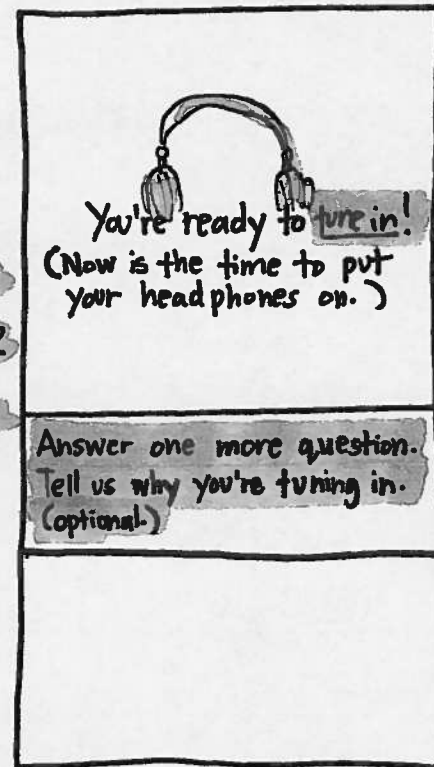 You're ready to tune in!
(Now is the time to put
your headphones on.)
Answer one more question.
Tell us why you're tuning in.
(optional.)